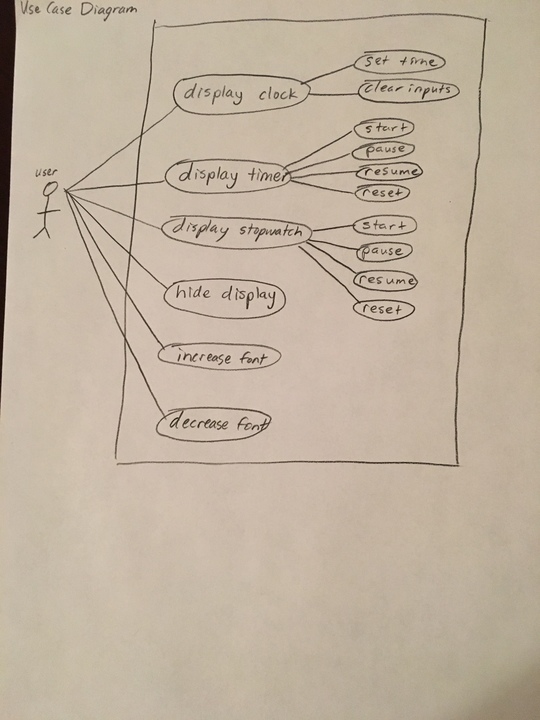 Use Case Diagram
user
display clock
set time
clear inputs
display timer
start
pause
resume
reset
display stopwatch
start
pause
resume
reset
hide display
increase font
decrease font